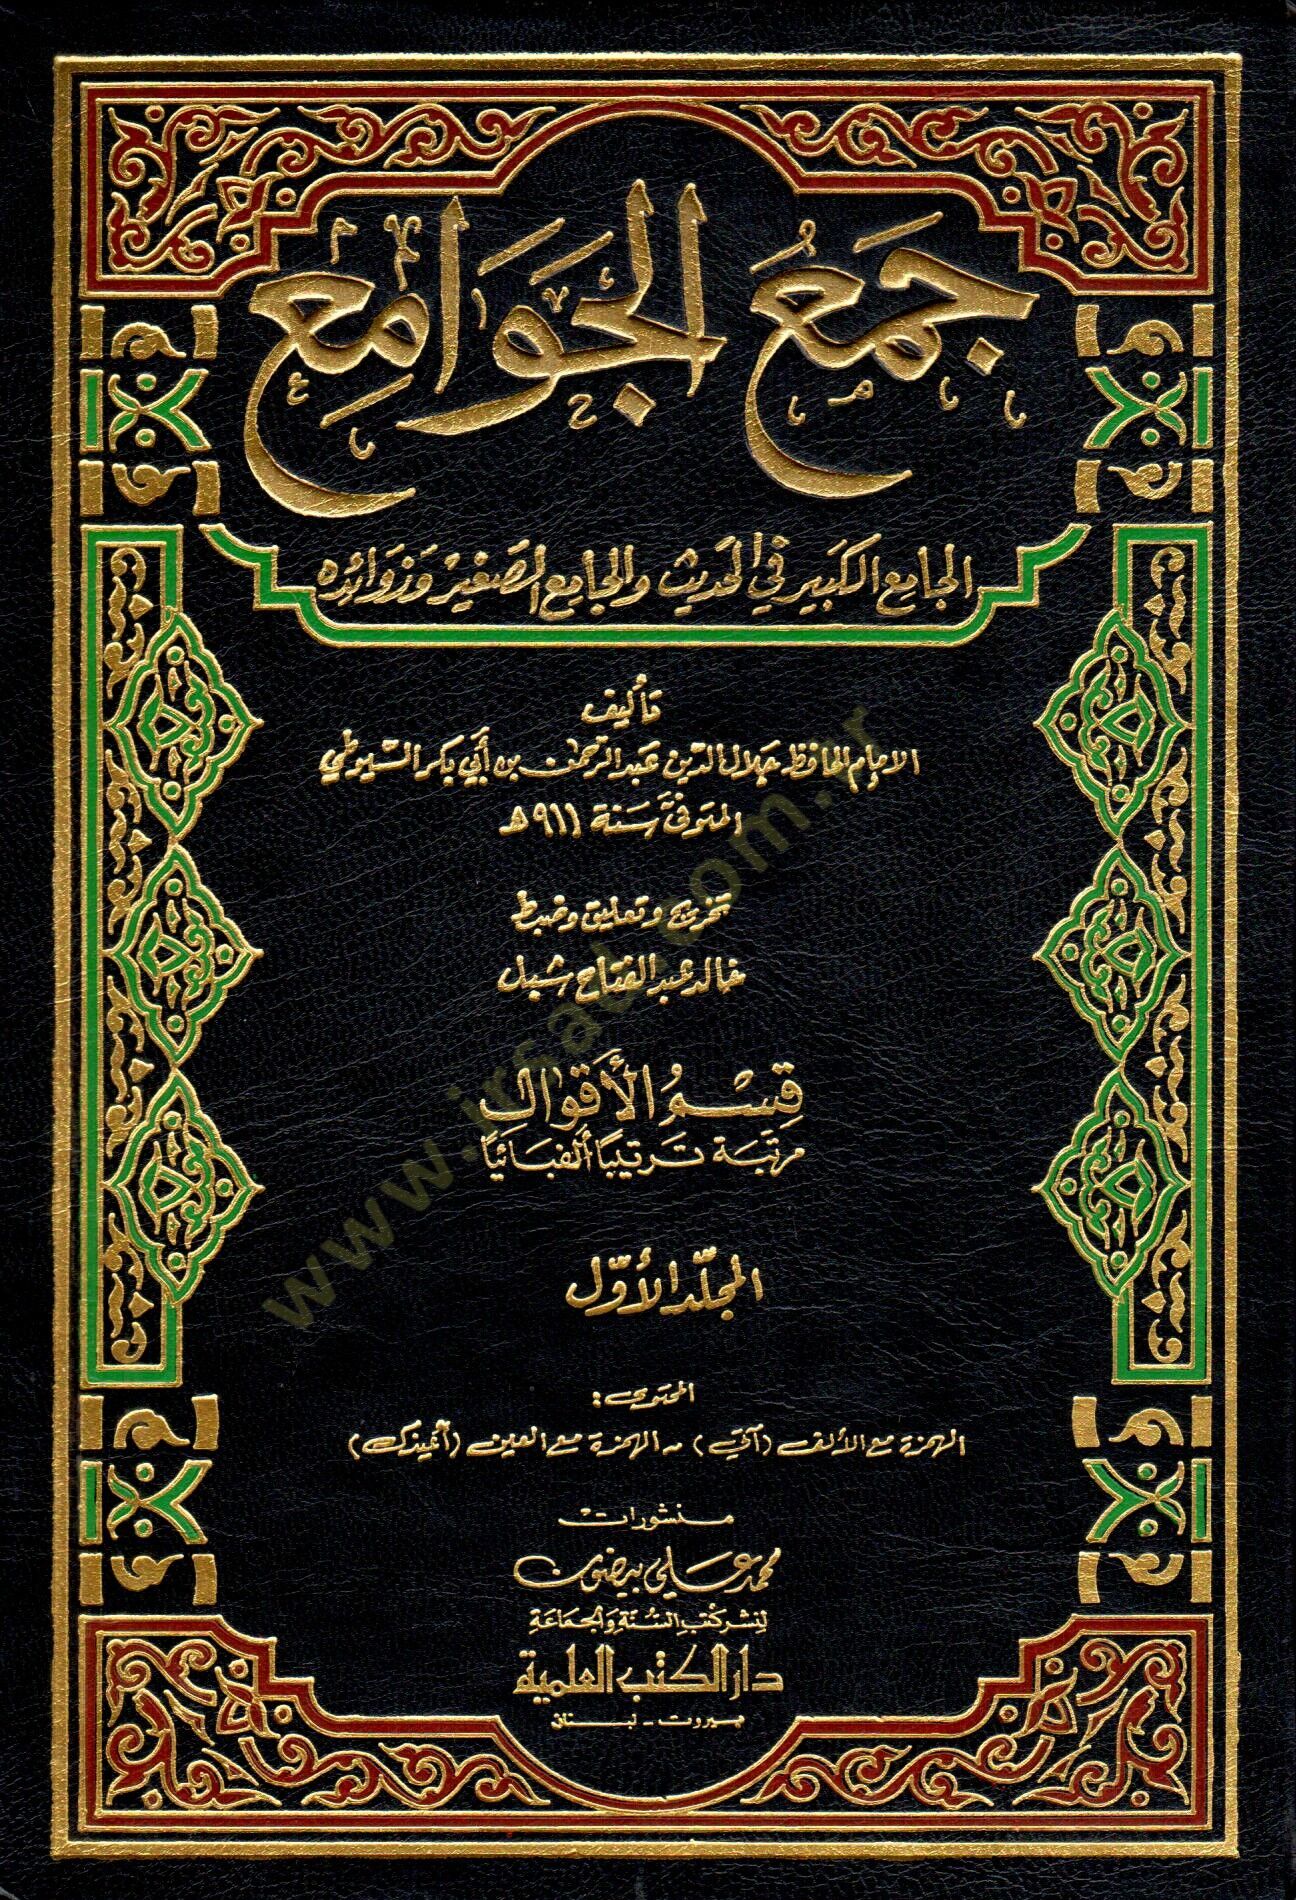 جَمْعُ الجَوَامِع
الجامع الكبير في الحديث والجامع الصغير وزوائده
تأليف
الإمام الحافظ جلال الدين عبد الرحمن بن أبي بكر السيوطي
المتوفى سنة ٩١١ هـ
تخريج وتعليق وضبط
خالد عبد الفتاح شبل
قِسْمُ الأَقْوَال
مرتبة ترتيباً ألفبائياً
المجلّد الأوّل
المحتوى:
الهمزة مع الألف (آتي) - الهمزة مع العين (أعيذك)
منشورات
محمد علي بيضون
لنشر كتب السنة والجماعة
دار الكتب العلمية
بيروت - لبنان
www.irsad.com.tr